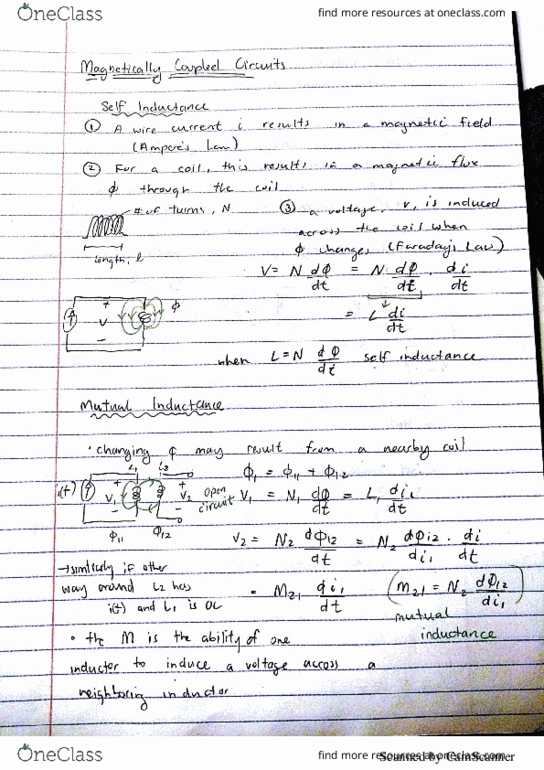 OneClass
find more resources at oneclass.com
Magnetically Coupled Circuits
Self Inductance
① A wire current i results in a magnetic field
(Ampere's Law)
② For a coil, this results in a magnetic flux
ϕ through the coil
# of turns, N
length, l
③ a voltage, v, is induced
across the coil when
ϕ changes (Faraday's Law)
V = N dϕ/dt = N dϕ/dt · di/dt
= L di/dt
+
V
-
ϕ
when L = N dϕ/dt self inductance
Mutual Inductance
• changing ϕ may result from a nearby coil
L1 L2
i(t) + V1 - + V2 - open circuit
ϕ11 ϕ12
ϕ1 = ϕ11 + ϕ12
V1 = N1 dϕ/dt = L1 di1/dt
V2 = N2 dϕ12/dt = N2 dϕ12/di1 · di/dt
→ similarly if other
way around L2 has
i(t) and L1 is OC
= M21 di1/dt (M21 = N2 dϕ12/di1)
mutual
inductance
• the M is the ability of one
inductor to induce a voltage across a
neighboring inductor
OneClass
find more resources at oneclass.com
Scanned by CamScanner